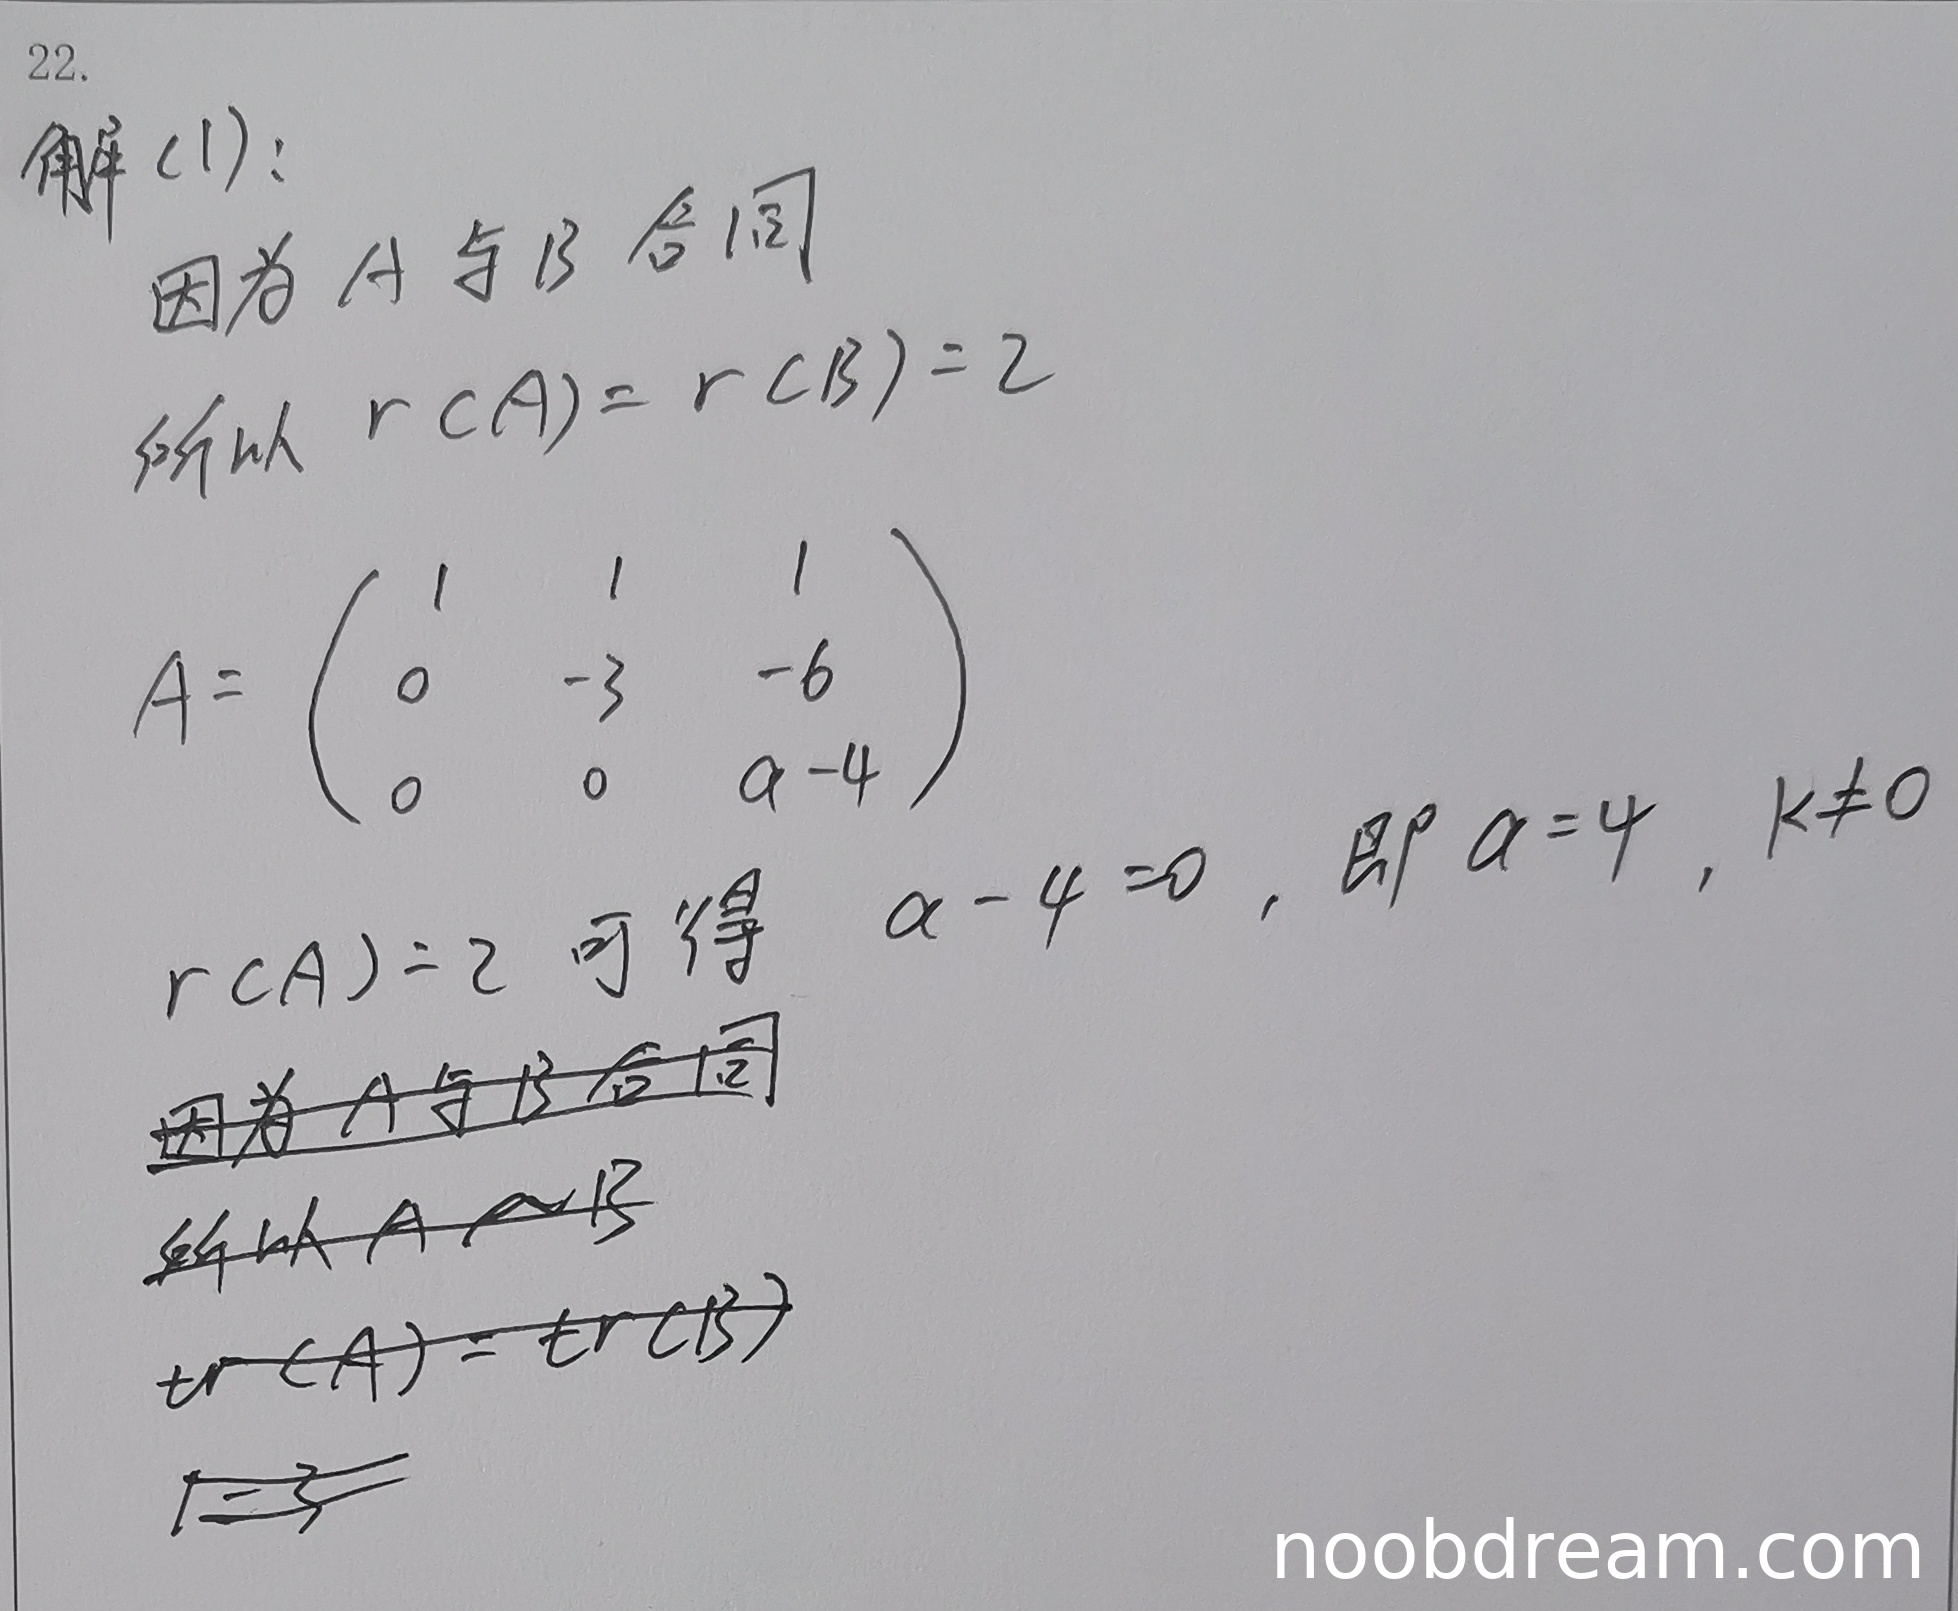 22.
解(1):
因为 A 与 B 合同
所以 r(A) = r(B) = 2
A = ( 1 1 1
0 -3 -6
0 0 a-4 )
r(A) = 2 可得 a-4=0, 即 a=4, k≠0
因为 A 与 B 合同
所以 A ~ B
tr(A) = tr(B)
1=3
noobdream.com